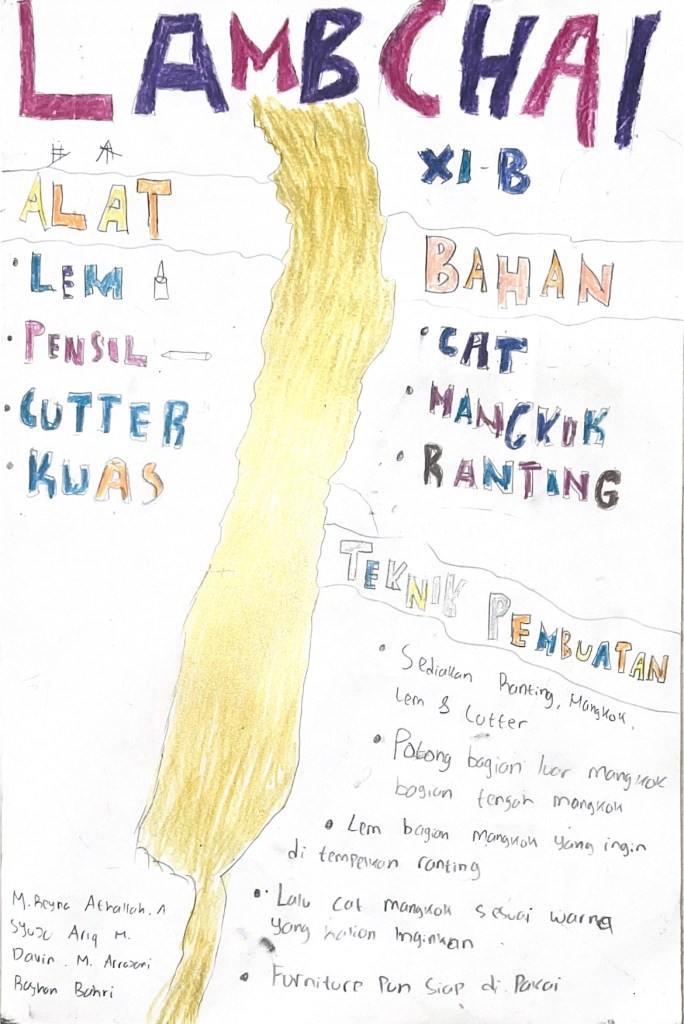 LAMBCHAI
XI-B
ALAT
• LEM
• PENSIL
• CUTTER
• KUAS
BAHAN
• CAT
• MANGKUK
• RANTING
TEKNIK PEMBUATAN
• Sediakan Ranting, Mangkok,
Lem & Cutter
• Potong bagian luar mangkok
bagian tengah mangkok
• Lem bagian mangkok yang ingin
di tempelkan ranting
• Lalu cat mangkok sesuai warna
yang kalian Inginkan
• Furniture Pun Siap di Pakai
M. Reyna Athallah. A
Ariq M.
M.
Bahri